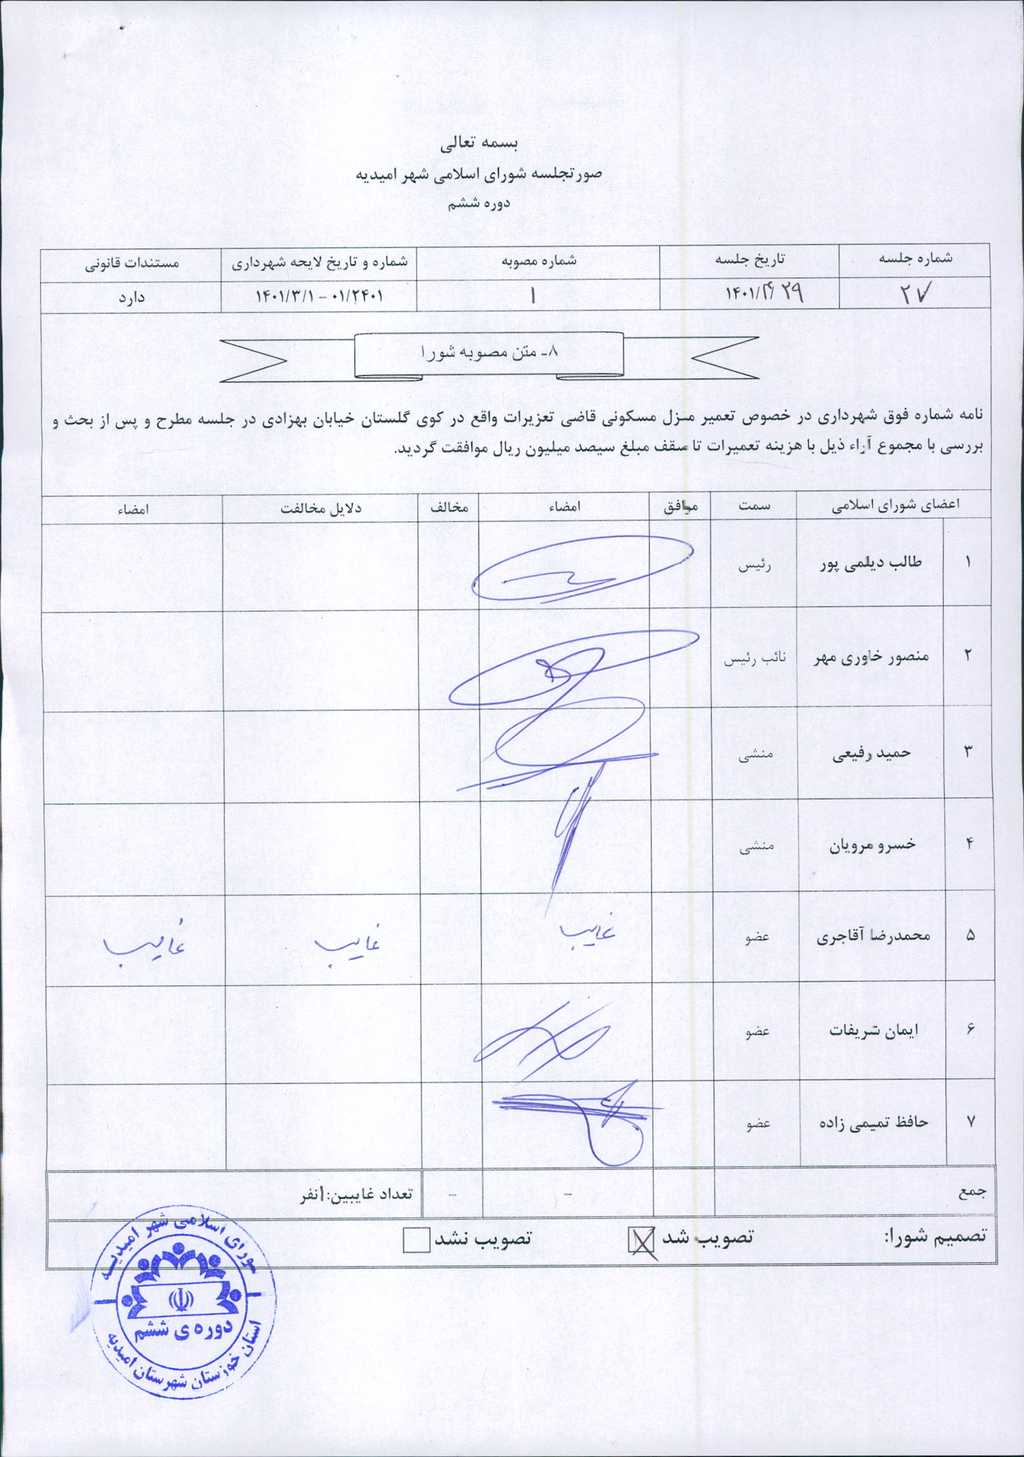 بسمه تعالی
صورتجلسه شورای اسلامی شهر امیدیه
دوره ششم
شماره جلسه تاریخ جلسه شماره مصوبه شماره و تاریخ لایحه شهرداری مستندات قانونی
۲۷ ۱۴۰۱/ /۲۹ ۱ ۰۱/۲۴۰۱ - ۱۴۰۱/۳/۱ دارد
۸- متن مصوبه شورا
نامه شماره فوق شهرداری در خصوص تعمیر منزل مسکونی قاضی تعزیرات واقع در کوی گلستان خیابان بهزادی در جلسه مطرح و پس از بحث و
بررسی با مجموع آراء ذیل با هزینه تعمیرات تا سقف مبلغ سیصد میلیون ریال موافقت گردید.
اعضای شورای اسلامی سمت موافق امضاء مخالف دلایل مخالفت امضاء
۱ طالب دیلمی پور رئیس
۲ منصور خاوری مهر نائب رئیس
۳ حمید رفیعی منشی
۴ خسرو مرویان منشی
۵ محمدرضا آقاجری عضو غایب غایب غایب
۶ ایمان شریفات عضو
۷ حافظ تمیمی زاده عضو
جمع - - تعداد غایبین:۱نفر
تصمیم شورا: تصویب شد تصویب نشد
شورای اسلامی شهر امیدیه
دوره ی ششم
استان خوزستان شهرستان امیدیه